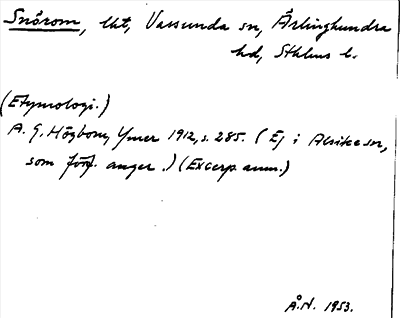 Snörom, lht, Vassunda sn, Ärlinghundra
hd, Sthlms l.
(Etymologi.)
A. G. Högbom, Ymer 1912, s. 285. (Ej i Alsike sn,
som förf. anger.) (Excerp. anm.)
Å.N. 1953.